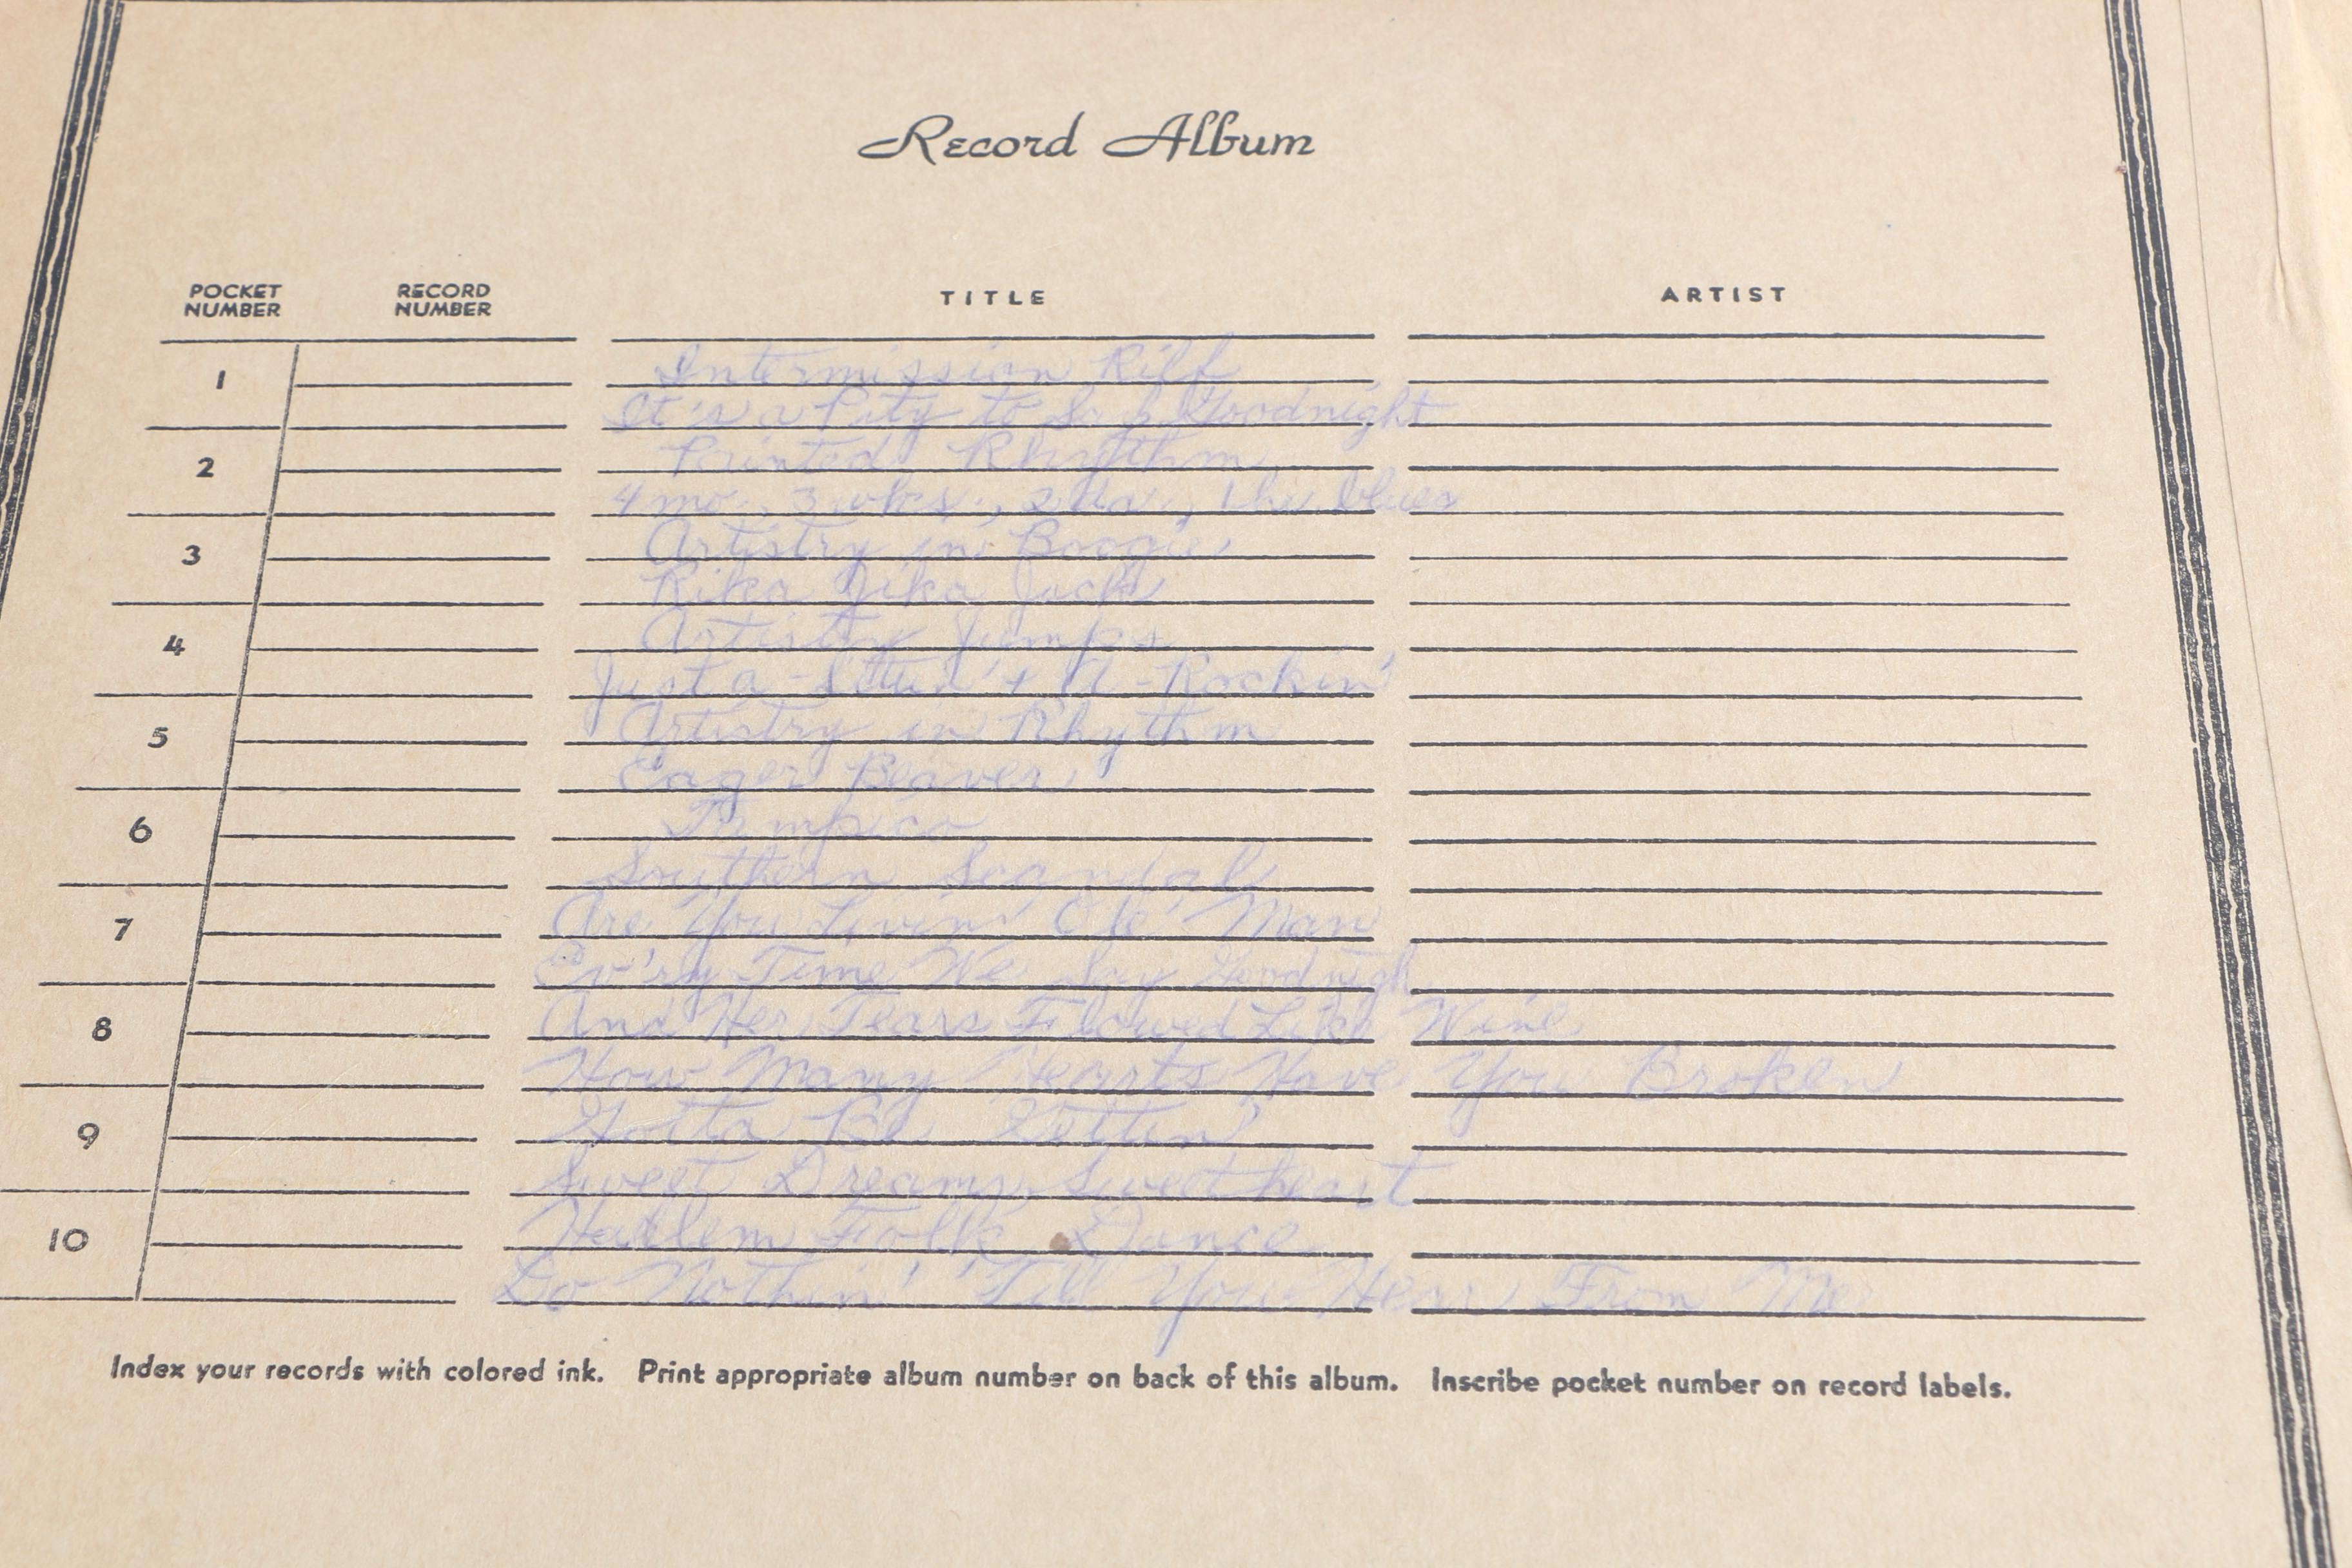 Record Album
POCKET NUMBER RECORD NUMBER TITLE ARTIST
1 Intermission Riff
It's a Pity to Say Goodnight
2 Painted Rhythm
4 mo., 3 wks., 2 da., 1 hr. blues
3 Artistry in Boogie
Rika Jika Jack
4 Artistry Jumps
Just a-Sittin' + A-Rockin'
5 Artistry in Rhythm
Eager Beaver
6 Tampico
Southern Scandal
7 Are You Livin' Ole' Man
Ev'ry Time We Say Goodnigh
8 And Her Tears Flowed Like Wine
How Many Hearts Have You Broken
9 Gotta Be Gettin'
Sweet Dreams, Sweetheart
10 Harlem Folk Dance
Do Nothin' 'Till You Hear From Me
Index your records with colored ink. Print appropriate album number on back of this album. Inscribe pocket number on record labels.